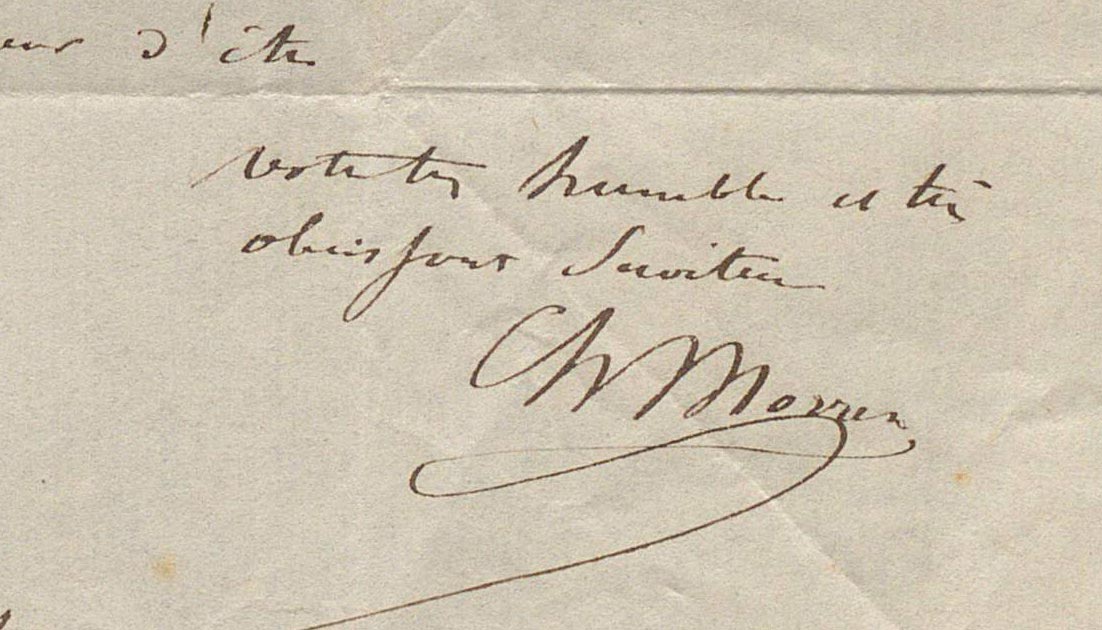 eur d'être
votre très humble et très
obeissant Serviteur
Ch Morren